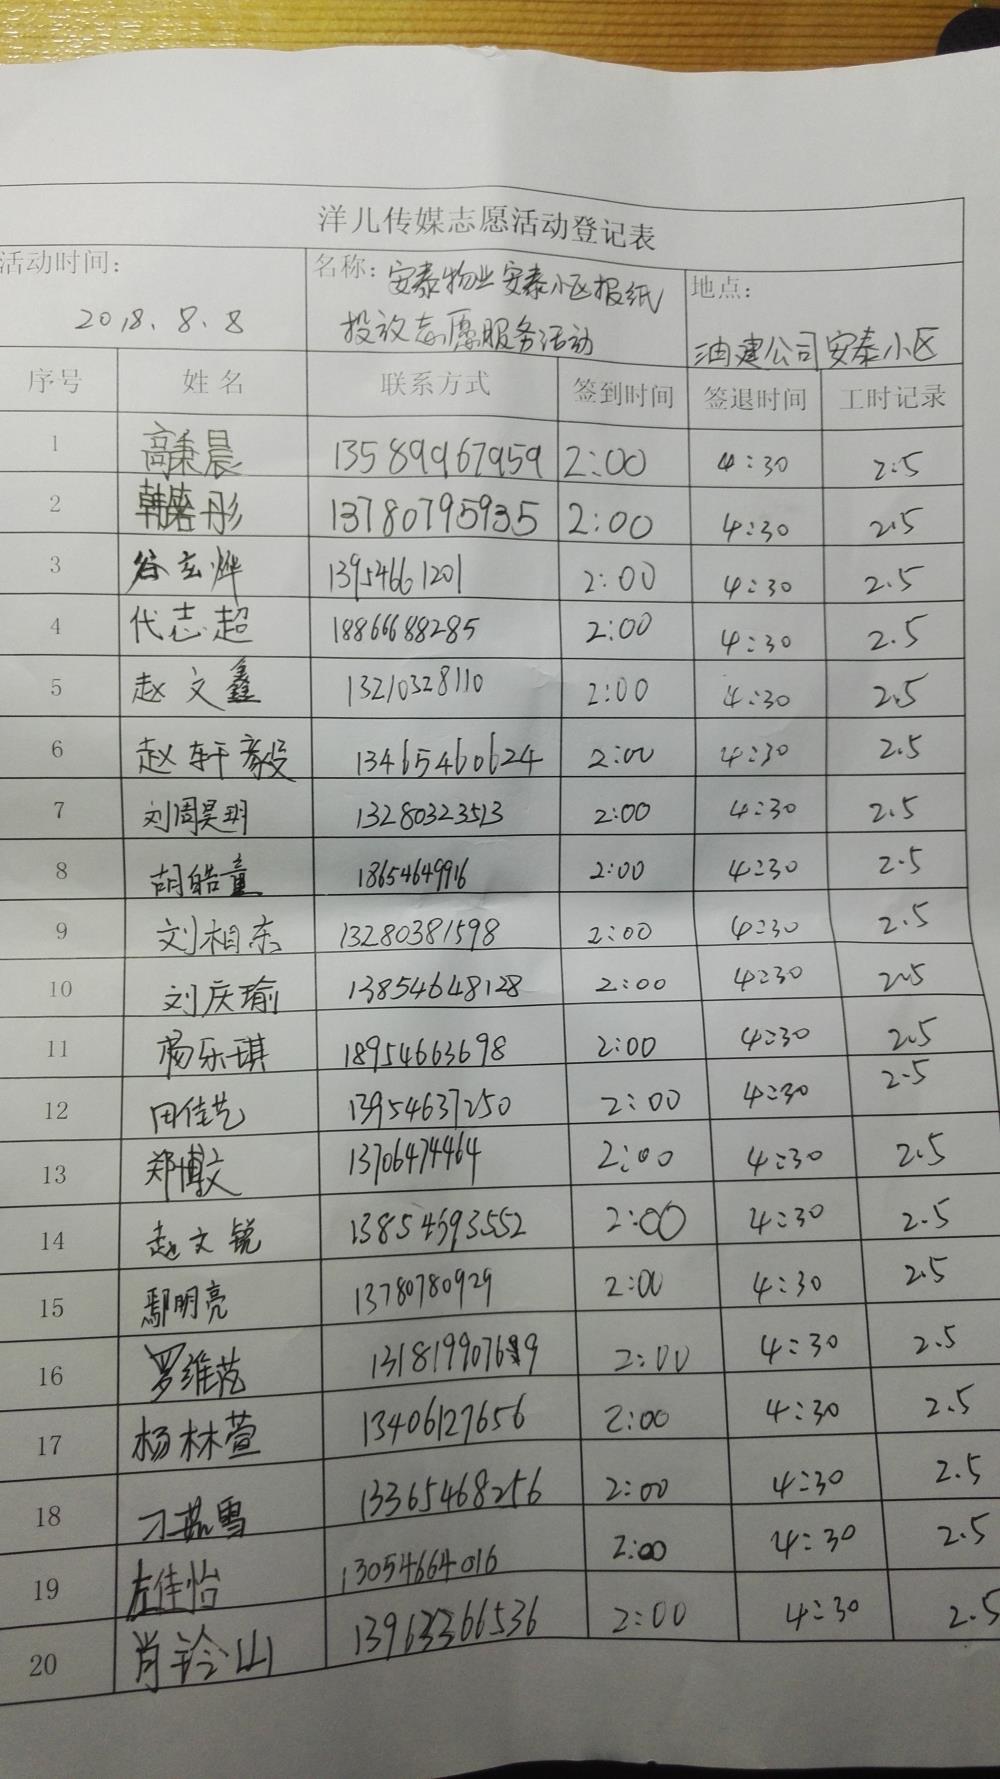 洋儿传媒志愿活动登记表
活动时间: 2018.8.8
名称: 安泰物业安泰小区报纸
投放志愿服务活动
地点: 油建公司安泰小区
序号 姓名 联系方式 签到时间 签退时间 工时记录
1 高秉晨 13589967959 2:00 4:30 2.5
2 韩 彤 13780795935 2:00 4:30 2.5
3 谷玄烨 13954661201 2:00 4:30 2.5
4 代志超 18866688285 2:00 4:30 2.5
5 赵文鑫 13210328110 2:00 4:30 2.5
6 赵轩毅 13465460624 2:00 4:30 2.5
7 刘周昊玥 13280323513 2:00 4:30 2.5
8 胡皓童 18654649916 2:00 4:30 2.5
9 刘相东 13280381598 2:00 4:30 2.5
10 刘庆瑜 13854648128 2:00 4:30 2.5
11 杨乐琪 18954663698 2:00 4:30 2.5
12 田佳艺 13954637250 2:00 4:30 2.5
13 郑博文 13706474464 2:00 4:30 2.5
14 赵文锐 13854693552 2:00 4:30 2.5
15 鄢明亮 13780780929 2:00 4:30 2.5
16 罗维范 2:00 4:30 2.5
17 杨林萱 13406127656 2:00 4:30 2.5
18 刁 雪 13365468256 2:00 4:30 2.5
19 左佳怡 13054664016 2:00 4:30 2.5
20 肖铃山 13963366536 2:00 4:30 2.5